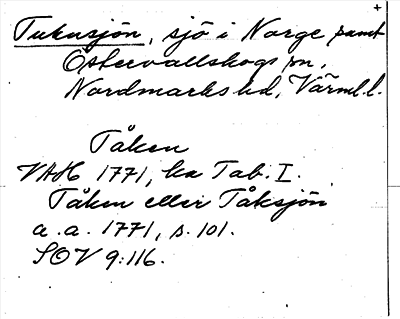 +
Tukusjön, sjö i Norge samt
Östervallskogs sn,
Nordmarks hd, Värml. l.
Tåken
VAH 1771, ka Tab. I.
Tåken eller Tåksjön
a.a. 1771, s. 101.
SOV 9:116.